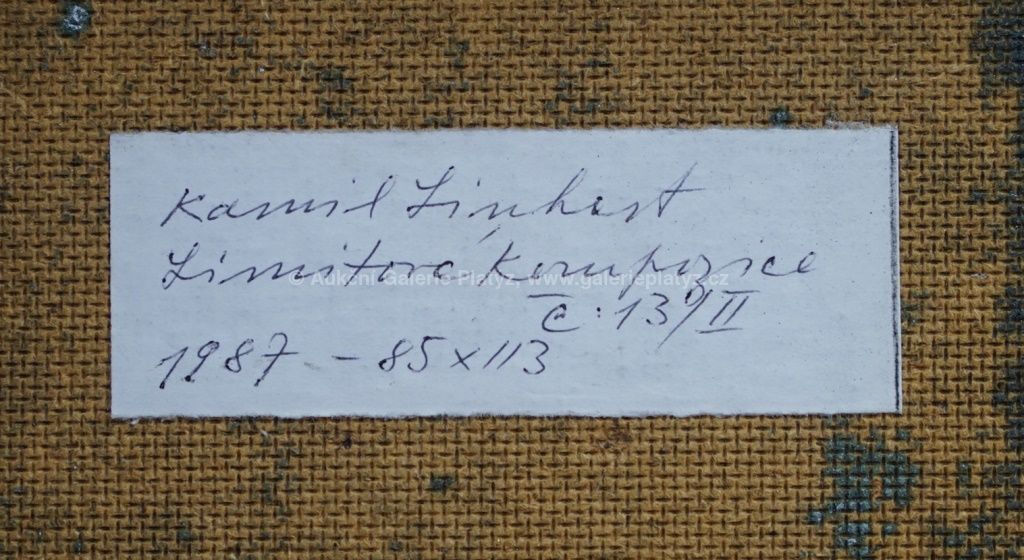 Kamil Linhart
Limitová kompozice
© Aukční Galerie Platýz, www.galerieplatyz.cz
č: 13/II
1987 – 85x113